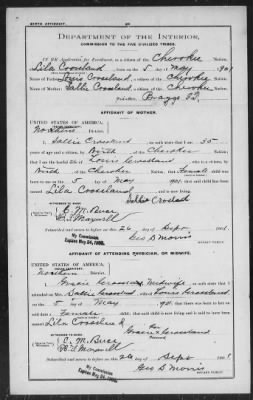 BIRTH AFFIDAVIT.
DEPARTMENT OF THE INTERIOR,
COMMISSION TO THE FIVE CIVILIZED TRIBES.
IN RE Application for Enrollment, as a citizen of the Cherokee Nation,
of Lila Crossland, born on the 5 day of May, 1901
Name of Father: Louis Crossland, a citizen of the Cherokee Nation.
Name of Mother: Sallie Crossland, a citizen of the Cherokee Nation.
Postoffice Braggs I.T.
AFFIDAVIT OF MOTHER.
UNITED STATES OF AMERICA,
Northern District.
I, Sallie Crossland, on oath state that I am 35
years of age and a citizen, by Birth of the Cherokee Nation;
that I am the lawful wife of Louis Crossland, who is a citizen, by
Birth of the Cherokee Nation; that a Female child was
born to me on the 5 day of May, 1901, that said child has been
named Lila Crossland, and is now living.
Sallie Crossland
WITNESSES TO MARK:
C. M. Maxwell
Subscribed and sworn to before me this 26 day of Sept, 1901.
My Commission
Expires May 24, 1905.
Geo D Morris
NOTARY PUBLIC.
AFFIDAVIT OF ATTENDING PHYSICIAN, OR MIDWIFE.
UNITED STATES OF AMERICA,
Northern District.
I, Crossland, a Midwife, on oath state that I
attended on Mrs. Sallie Crossland, wife of Louis Crossland
on the 5 day of May, 1901; that there was born to her on
said date a Female child; that said child is now living and is said to have been
named Lila Crossland
her
Crossland
WITNESSES TO MARK:
C. M.
Maxwell
Subscribed and sworn to before me this 26 day of Sept, 1901.
My Commission
Expires May 24, 1905.
Geo D Morris
NOTARY PUBLIC.